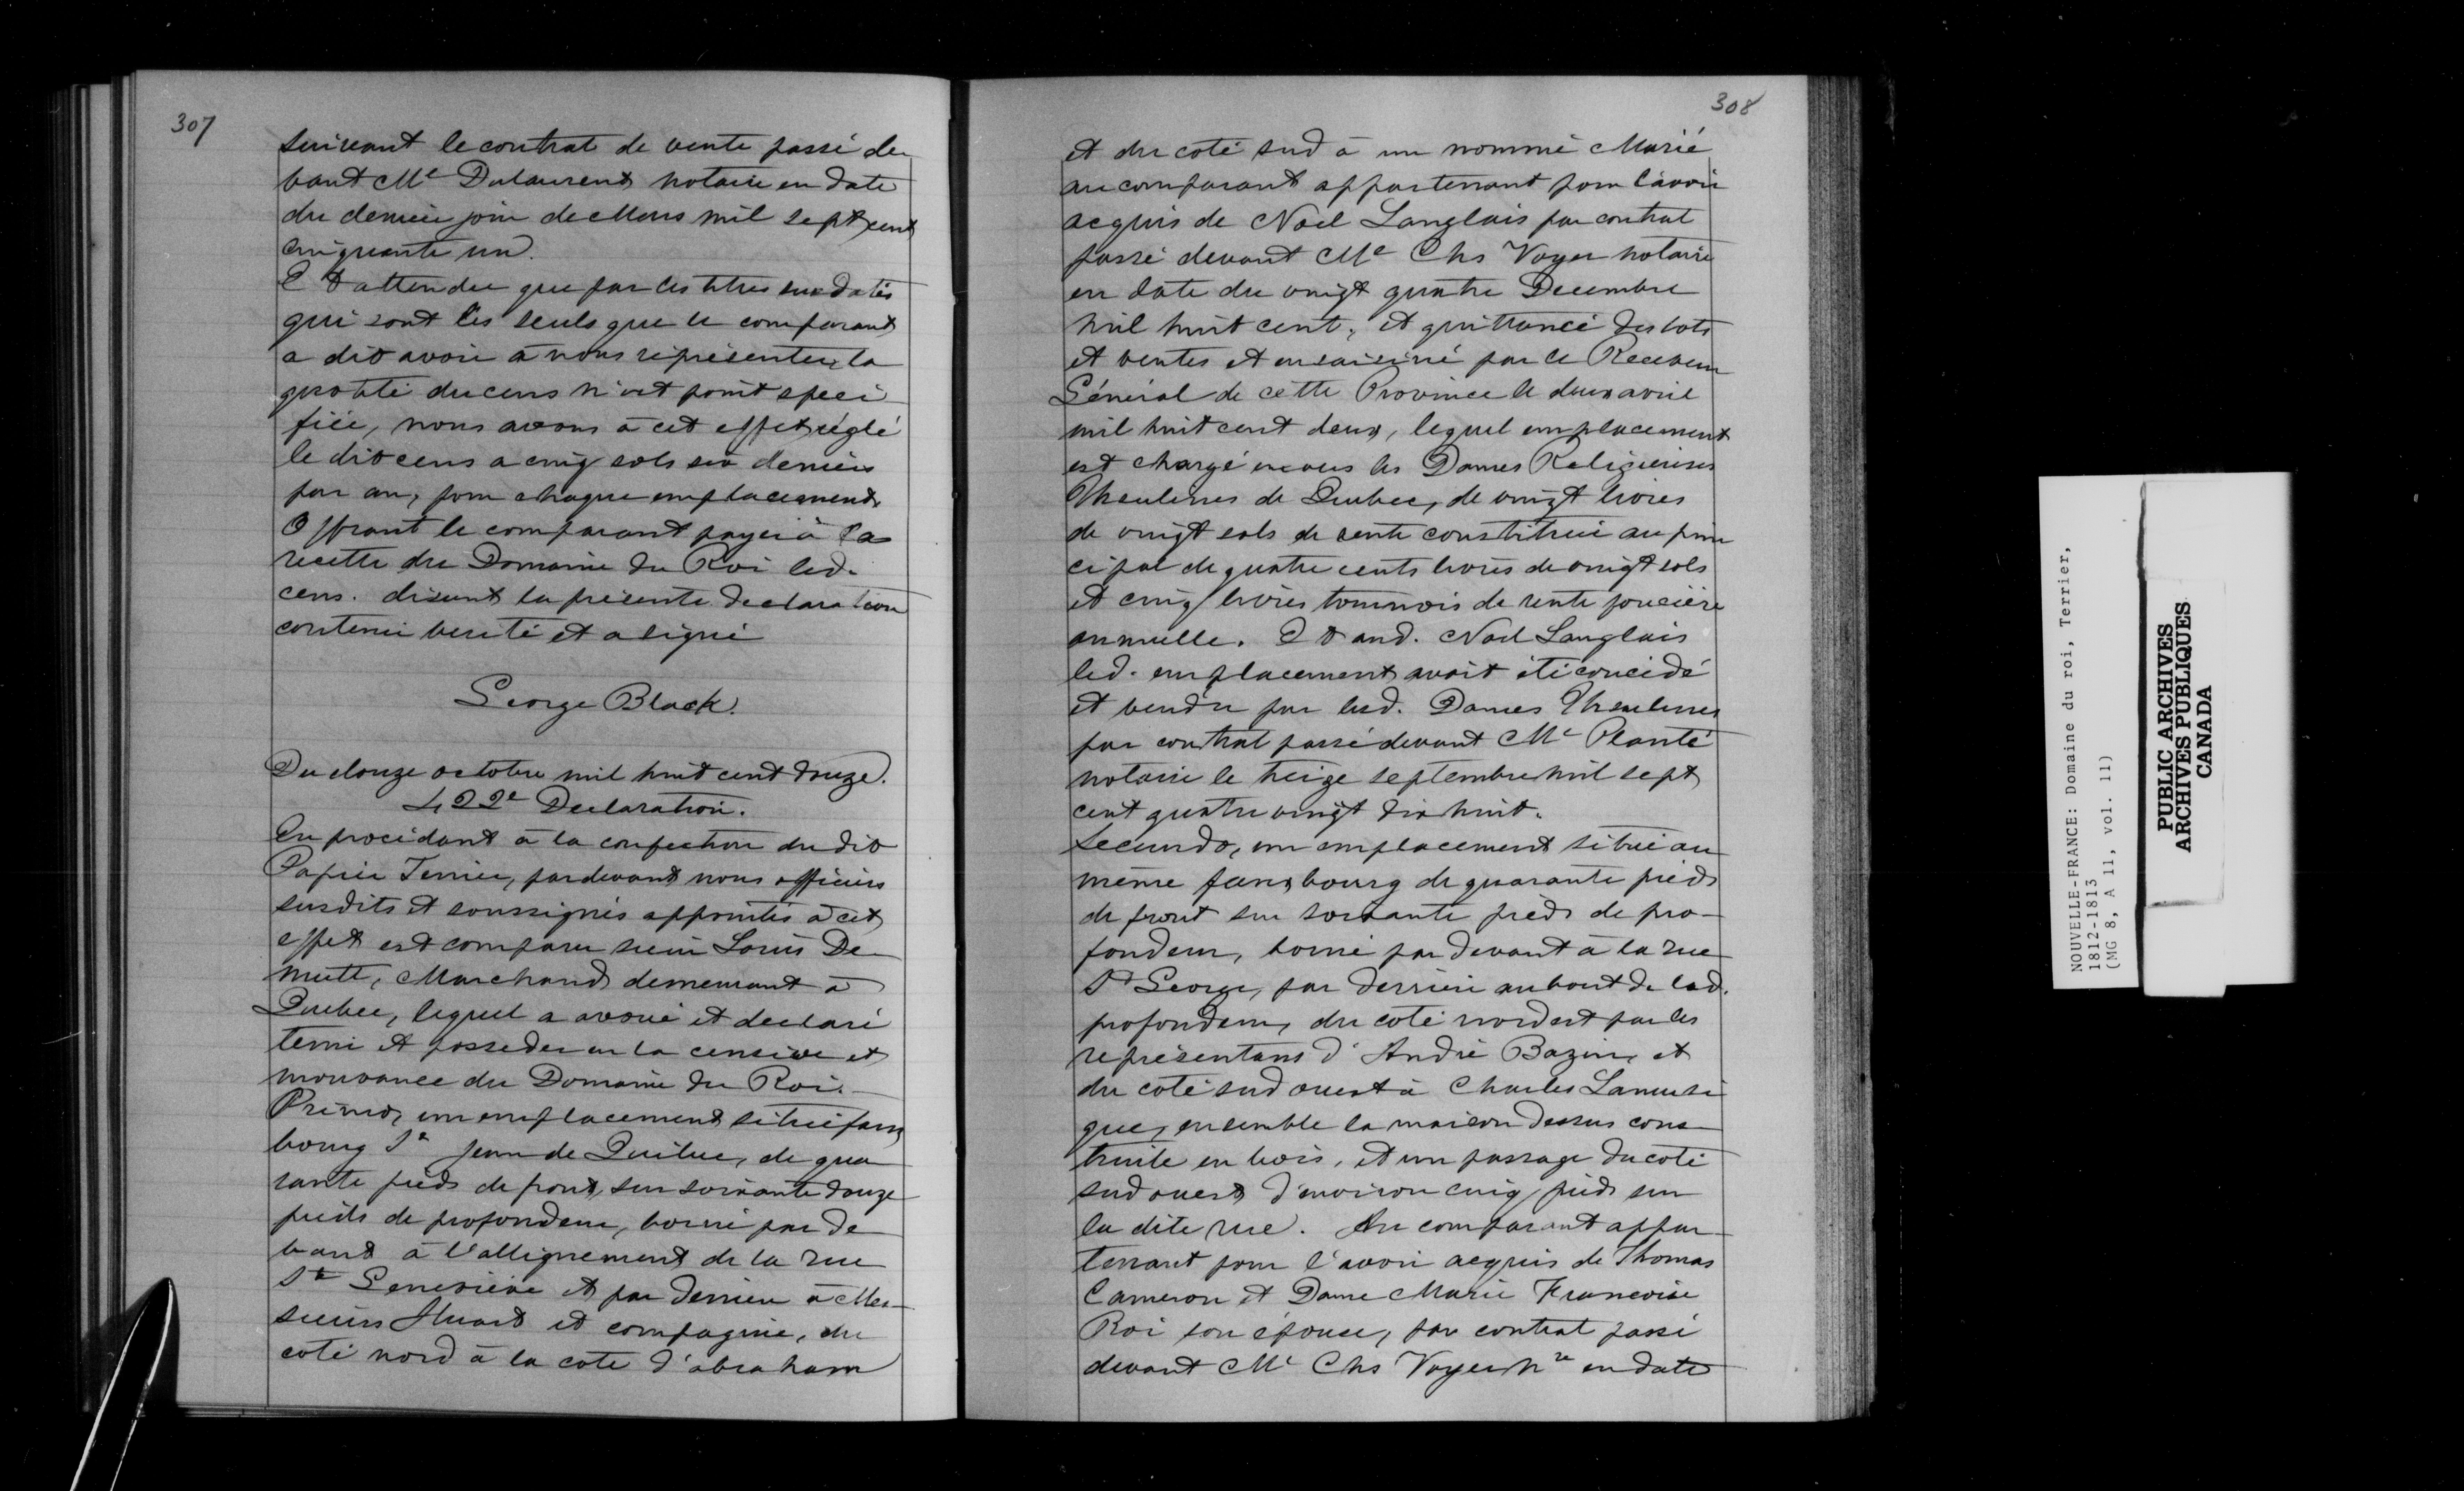 307
suivant le contrat de vente passé de
vant Me Dulaurent notaire en date
du dernier jour de Mars mil sept cent
cinquante un.
Et attendu que par les titres susdatés
qui sont les seuls que le comparant
a dit avoir à nous représenter, la
quotité du cens n'est point speci
fiée, nous avons à cet effet réglé
le dit cens a cinq sols six deniers
par an, pour chaque emplacement.
Offrant le comparant payer à la
recette du Domaine du Roi led.
cens. disant la présente declaration
contenir verité et a signé
George Black.
Du douze octobre mil huit cent douze.
422e Declaration.
En procédant à la confection du dit
Papier Terrier, pardevant nous officiers
susdits et soussignés appointés à cet
effet est comparu sieur Louis De
mutt, Marchand demeurant à
Quebec, lequel a avoué et declaré
tenir et posseder en la censive et
mouvance du Domaine du Roi.
Primo, un emplacement situé faux
bourg St Jean de Québec, de qua
rante pieds de front, sur soixante douze
pieds de profondeur, borné par de
vant à l'allignement de la rue
Ste Genevieve et par derrière à Mes
sieurs Stuart et compagnie, du
coté nord à la cote d'abraham
308
et du coté sud à un nommé Marié
au comparant appartenant pour l'avoir
acquis de Noel Langlais par contrat
passé devant Me Chs Voyer notaire
en date du vingt quatre Decembre
mil huit cent, et quittancé des lots
et ventes et ensaisiné par le Receveur
Général de cette Province le deux avril
mil huit cent deux, lequel emplacement
est chargé envers les Dames Religieuses
Ursulines de Quebec, de vingt livres
de vingt sols de rente constituée au prin
cipal de quatre cents livres de vingt sols
et cinq livres tournois de rente foncière
annuelle. Et aud. Noel Langlais
led. emplacement avoit été concédé
et vendu par lesd. Dames Ursulines
par contrat passé devant Me Planté
notaire le treize septembre mil sept
cent quatre vingt dix huit.
Secundo, un emplacement situé au
même fauxbourg de quarante pieds
de front sur soixante pieds de pro-
fondeur, borné par devant à la rue
St George, par derrière au bout de lad.
profondeur, du coté nordest par les
représentans d'André Bazin, et
du coté sud ouest à Charles Lamusi
que, ensemble la maison dessus cons
truite en bois, et un passage du coté
sud ouest d'environ cinq pieds sur
la dite rue. Au comparant appar
tenant pour l'avoir acquis de Thomas
Cameron et Dame Marie Francoise
Roi son épouse, par contrat passé
devant Me Chs Voyer Nre en date
NOUVELLE-FRANCE: Domaine du roi, Terrier,
1812-1813
(MG 8, A 11, vol. 11)
PUBLIC ARCHIVES
ARCHIVES PUBLIQUES
CANADA